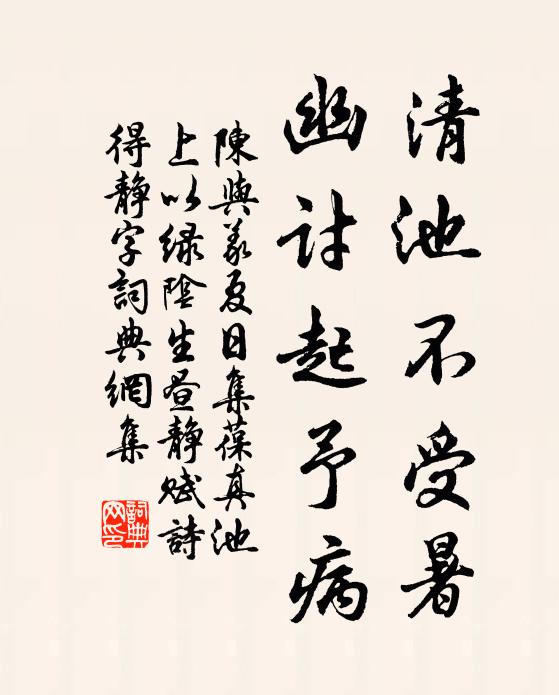 清池不受暑
幽討起予病
陳與義夏日集葆真池
上以緑陰生昼靜賦詩
得靜字詞典網集
詞典網印